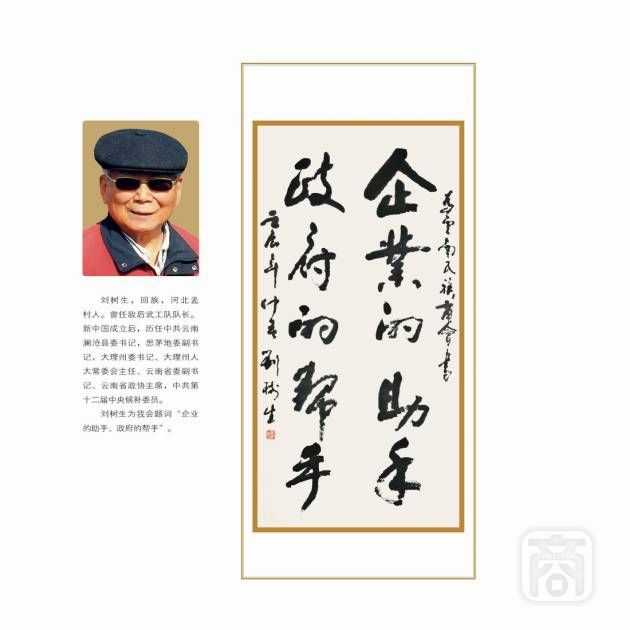 刘树生，回族，河北孟
村人。曾任敌后武工队队长。
新中国成立后，历任中共云南
澜沧县委书记，思茅地委副书
记，大理州委书记、大理州人
大常委会主任、云南省委副书
记、云南省政协主席，中共第
十二届中央候补委员。
刘树生为我会题词“企业
的助手、政府的帮手”。
云南民族商会书
企業的助手
政府的帮手
壬辰年仲春 刘树生
商